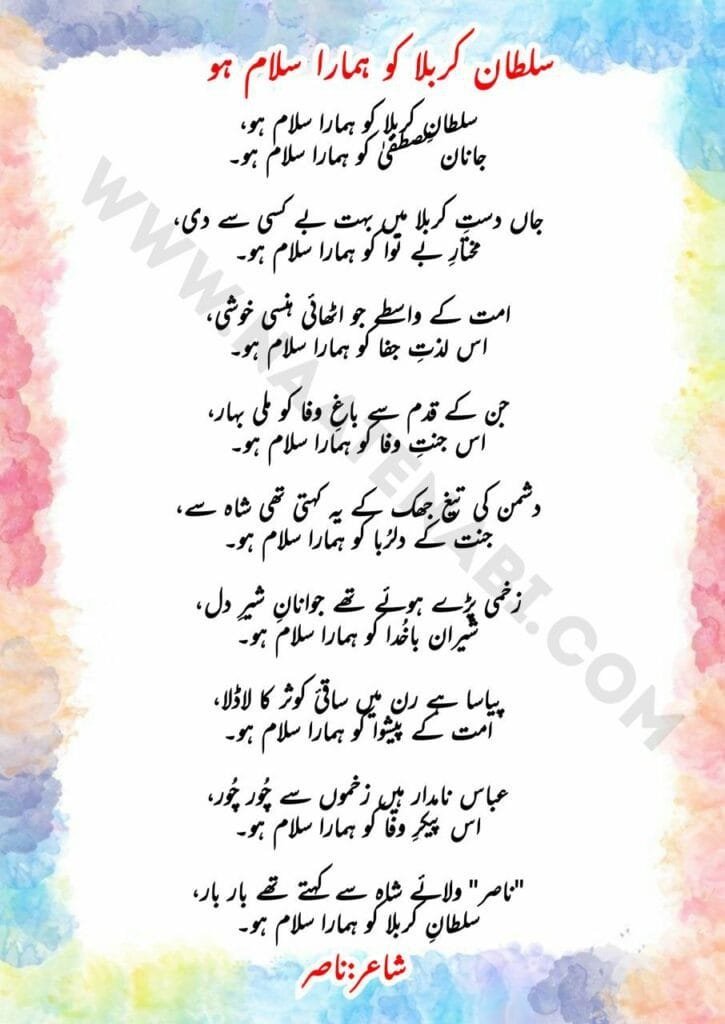 سلطان کربلا کو ہمارا سلام ہو
سلطانِ کربلا کو ہمارا سلام ہو،
جانان مصطفیٰ کو ہمارا سلام ہو۔
جاں دستِ کربلا میں بہت بے کسی سے دی،
مختارِ بے توا کو ہمارا سلام ہو۔
امت کے واسطے جو اٹھائی ہنسی خوشی،
اس لذتِ جفا کو ہمارا سلام ہو۔
جن کے قدم سے باغِ وفا کو ملی بہار،
اس جنتِ وفا کو ہمارا سلام ہو۔
دشمن کی تیغ جھک کے یہ کہتی تھی شاہ سے،
جنت کے دلرُبا کو ہمارا سلام ہو۔
زخمی پڑے ہوئے تھے جوانانِ شیرِ دل،
شیران باخُدا کو ہمارا سلام ہو۔
پیاسا ہے رن میں ساقیٔ کوثر کا لاڈلا،
امت کے پیشوا کو ہمارا سلام ہو۔
عباس نامدار ہیں زخموں سے چُور چُور،
اس پیکرِ وفا کو ہمارا سلام ہو۔
"ناصر" ولائے شاہ سے کہتے تھے بار بار،
سلطانِ کربلا کو ہمارا سلام ہو۔
شاعر:ناصر
WWW.NAATENABI.COM